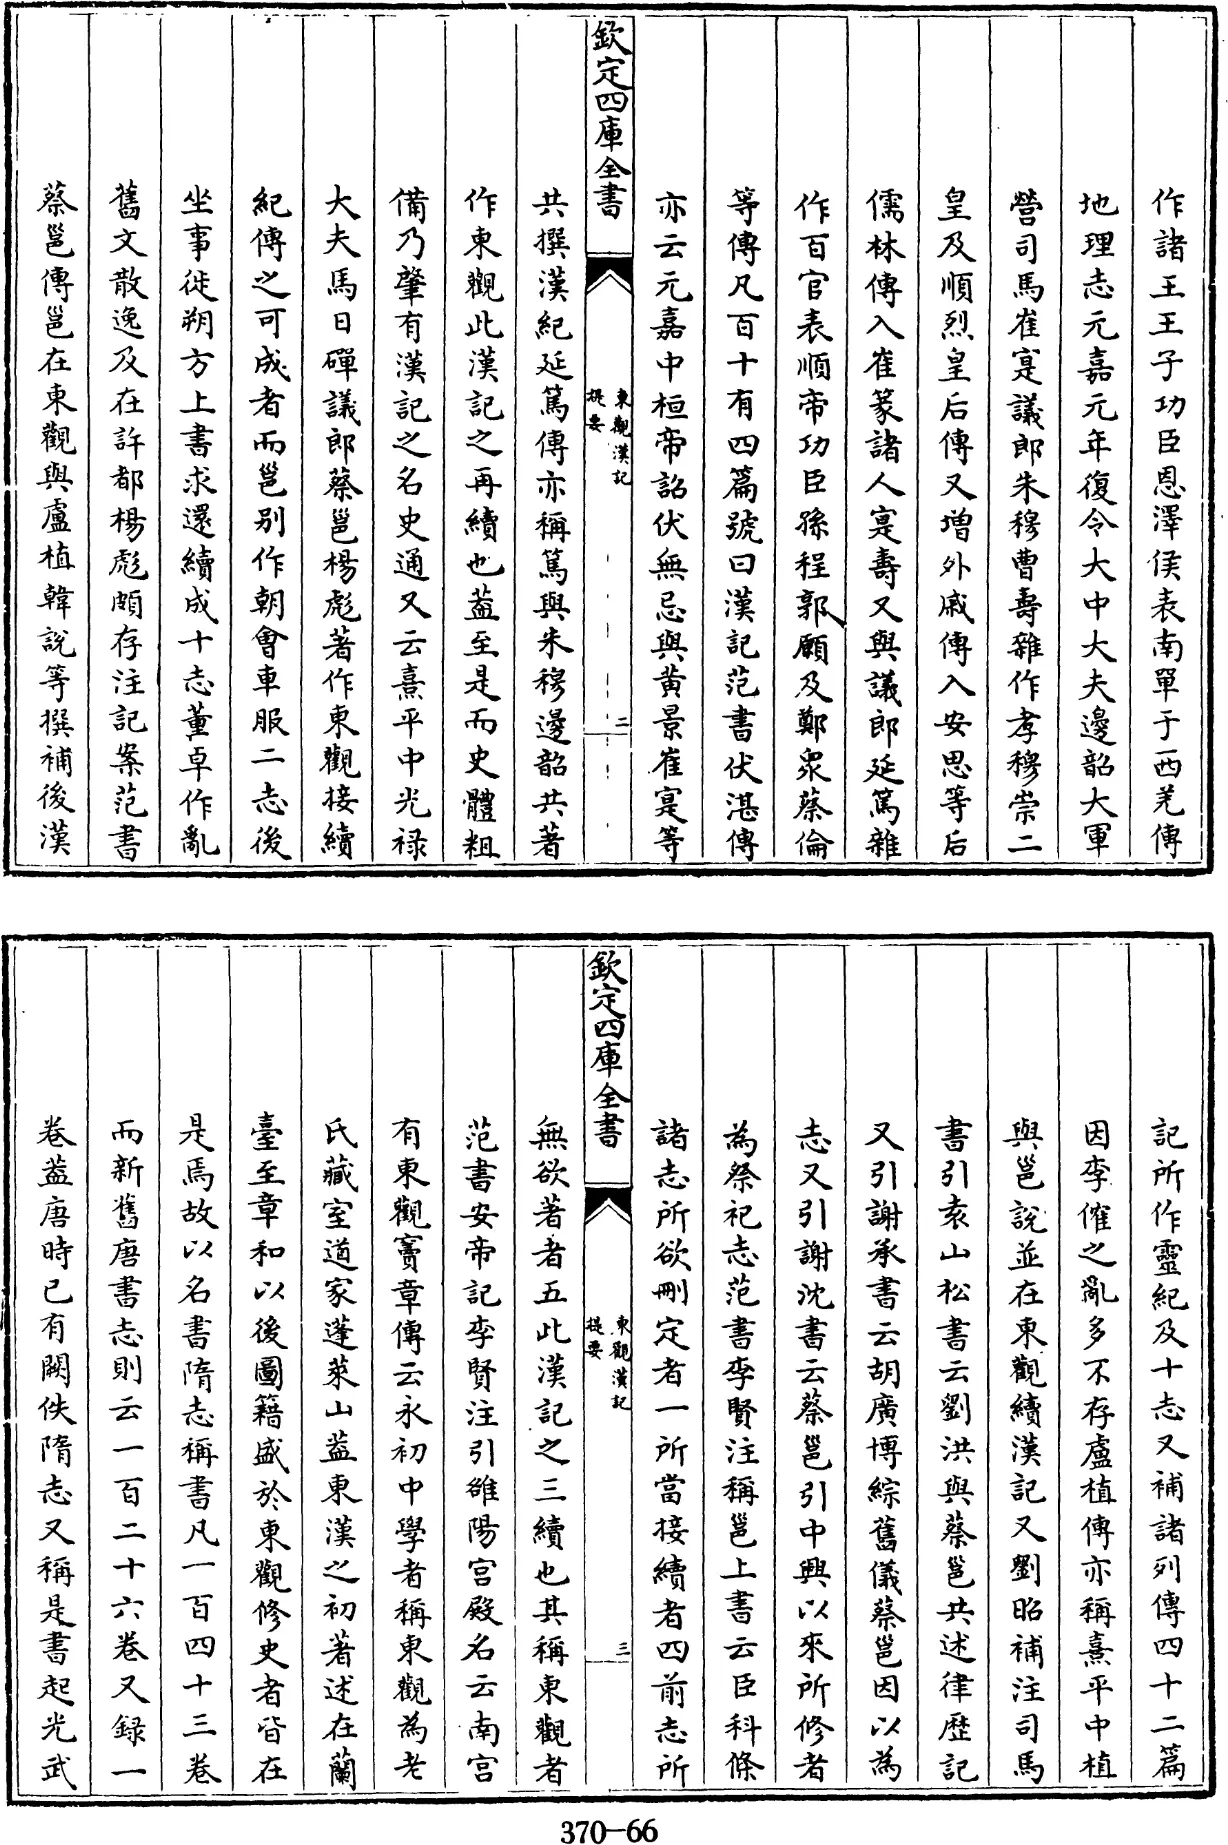 作諸王王子功臣恩澤侯表南單于西羌傳
地理志元嘉元年復令大中大夫邊韶大軍
營司馬崔寔議郎朱穆曹壽雜作孝穆崇二
皇及順烈皇后傳又增外戚傳入安思等后
儒林傳入崔篆諸人寔壽又與議郎延篤雜
作百官表順帝功臣孫程郭願及鄭衆蔡倫
等傳凡百十有四篇號曰漢記范書伏湛傳
亦云元嘉中桓帝詔伏無忌與黄景崔寔等
欽定四庫全書
東觀漢記
提要
二
共撰漢紀延篤傳亦稱篤與朱穆邊韶共著
作東觀此漢記之再續也葢至是而史體粗
備乃肇有漢記之名史通又云熹平中光禄
大夫馬日磾議郎蔡邕楊彪著作東觀接續
紀傳之可成者而邕别作朝會車服二志後
坐事徙朔方上書求還續成十志董卓作亂
舊文散逸及在許都楊彪頗存注記案范書
蔡邕傳邕在東觀與盧植韓說等撰補後漢
記所作靈紀及十志又補諸列傳四十二篇
因李傕之亂多不存盧植傳亦稱熹平中植
與邕說並在東觀續漢記又劉昭補注司馬
書引袁山松書云劉洪與蔡邕共述律歴記
又引謝承書云胡廣博綜舊儀蔡邕因以為
志又引謝沈書云蔡邕引中興以來所修者
為祭祀志范書李賢注稱邕上書云臣科條
諸志所欲刪定者一所當接續者四前志所
欽定四庫全書
東觀漢記
提要
三
無欲著者五此漢記之三續也其稱東觀者
范書安帝記李賢注引雒陽宫殿名云南宫
有東觀竇章傳云永初中學者稱東觀為老
氏藏室道家蓬萊山葢東漢之初著述在蘭
臺至章和以後圖籍盛於東觀修史者皆在
是焉故以名書隋志稱書凡一百四十三卷
而新舊唐書志則云一百二十六卷又録一
卷葢唐時已有闕佚隋志又稱是書起光武
370-66